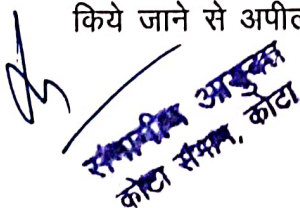 किये जाने से अपील
संभागीय आयुक्त
कोटा संभाग, कोटा